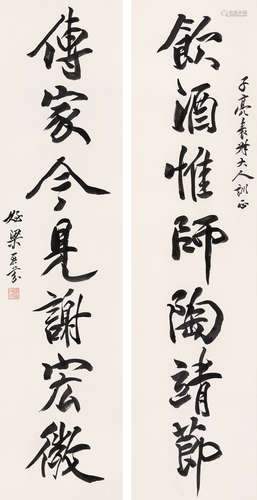 子亮表叔大人訓正
飲酒惟師陶靖節
傳家今見謝宏微
姪梁